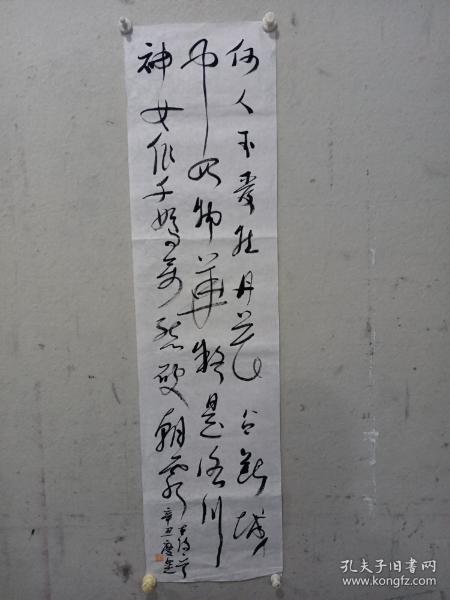 何人不爱牡丹花占断城
中好物华疑是洛川
神女作千娇万态破朝霞
古诗一首
辛丑
孔夫子旧书网
www.kongfz.com